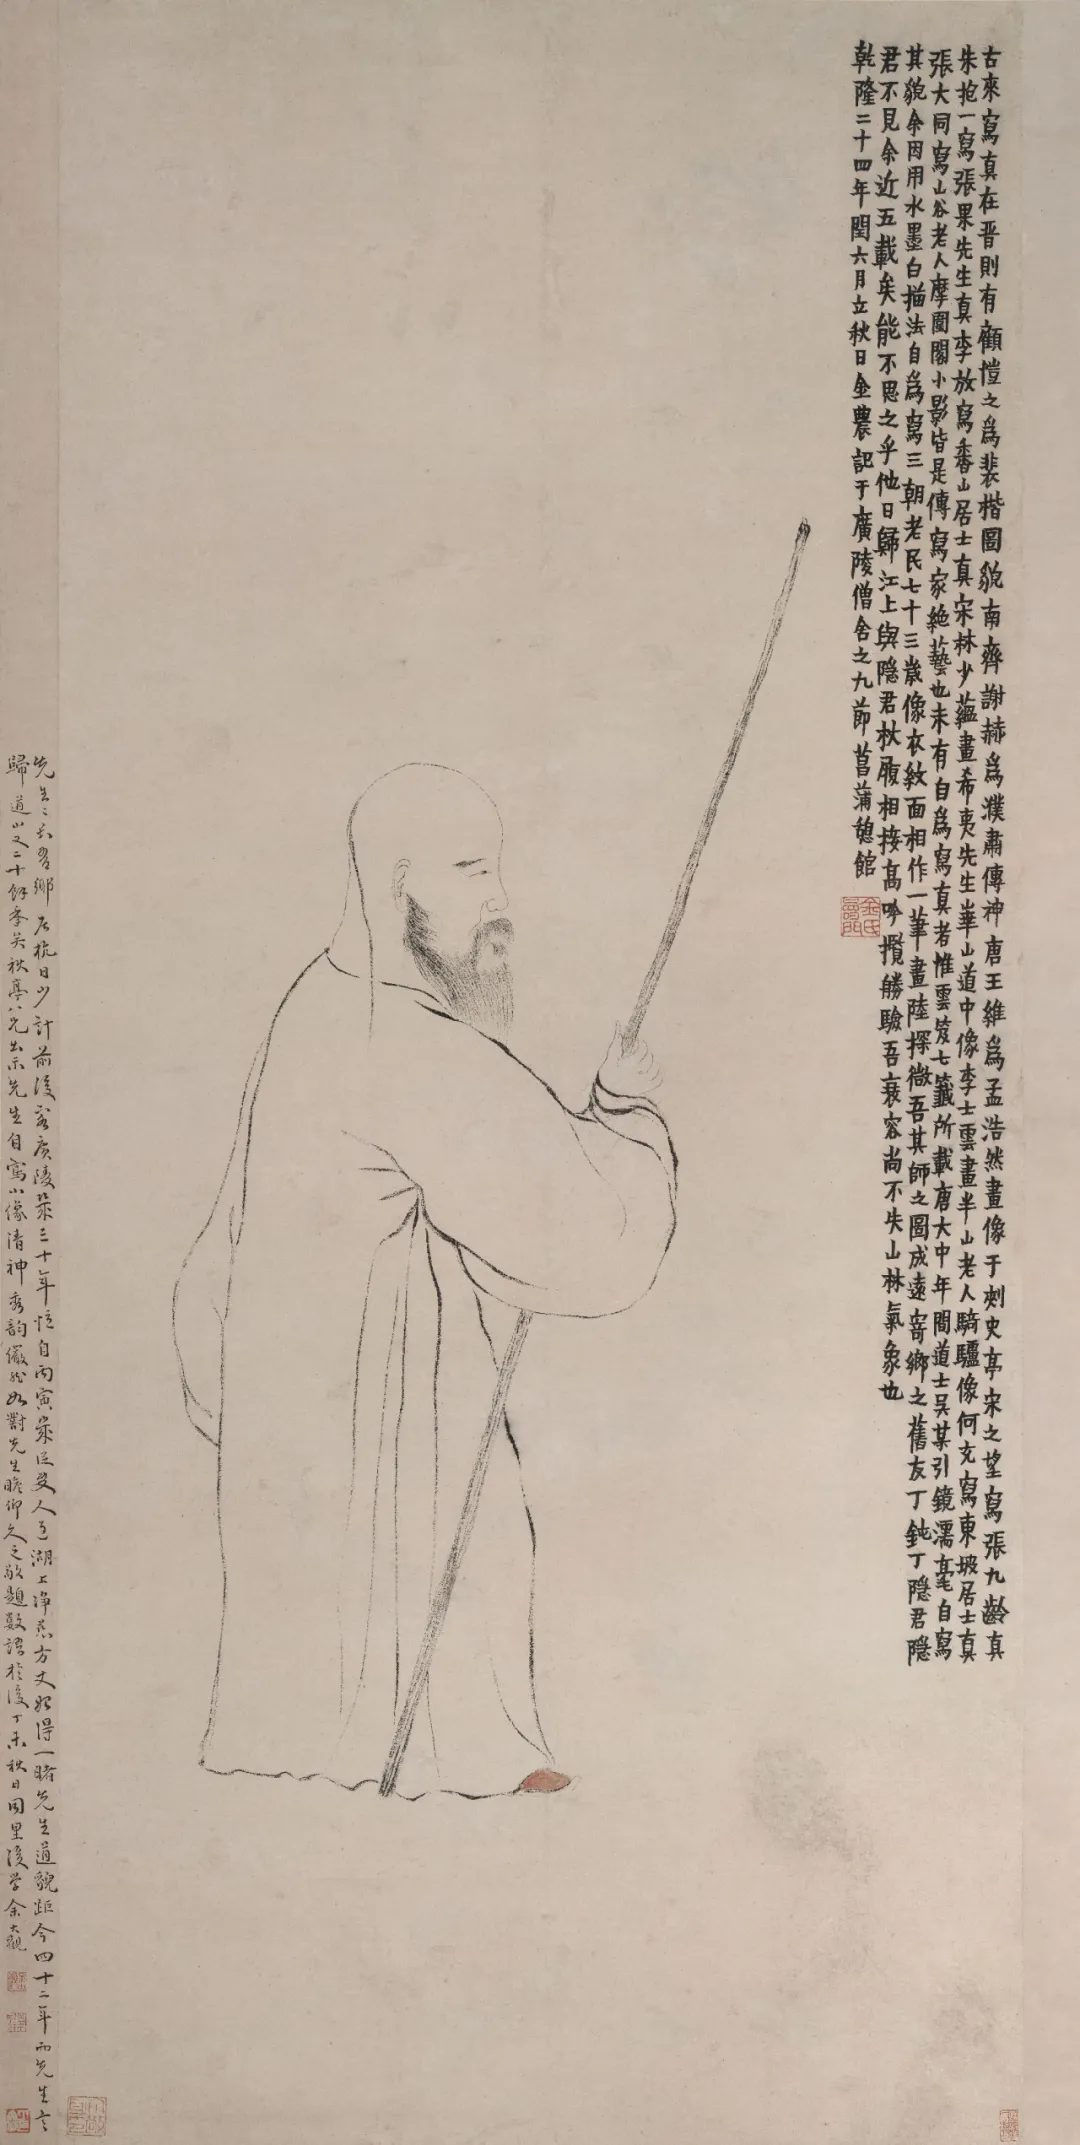 古來寫真在晋則有顧愷之為裴楷圖貌南齊謝赫為濮肅傳神唐王維為孟浩然畫像于刺史亭宋之望寫張九齡真
朱抱一寫張果先生真李放寫香山居士真宋林少蘊畫希夷先生華山道中像李士雲畫半山老人騎驢像何充寫東坡居士真
張大同寫山谷老人摩圍閣小影皆是傳寫家絶藝也未有自為寫真者惟雲笈七籤所載唐大中年間道士吴某引鏡濡毫自寫
其貌余因用水墨白描法自為寫三朝老民七十三歲像衣紋面相作一筆畫陸探微吾其師之圖成遠寄鄉之舊友丁鈍丁隱君隱
君不見余近五載矣能不思之乎他日歸江上與隱君杖履相接高吟攬勝驗吾衰容尚不失山林氣象也
乾隆二十四年閏六月立秋日金農記于廣陵僧舍之九節菖蒲憩館
金氏
先生吾鄉居杭日少計前後客廣陵幾三十年憶自丙寅歲從友人至湖上净慈方丈始得一睹先生道貌距今四十二年而先生之
歸道山又二十餘季矣秋亭八兄出示先生自寫小像清神秀韵儼然如對先生瞻仰久之敬題數語於後丁未秋日同里後學余大觀